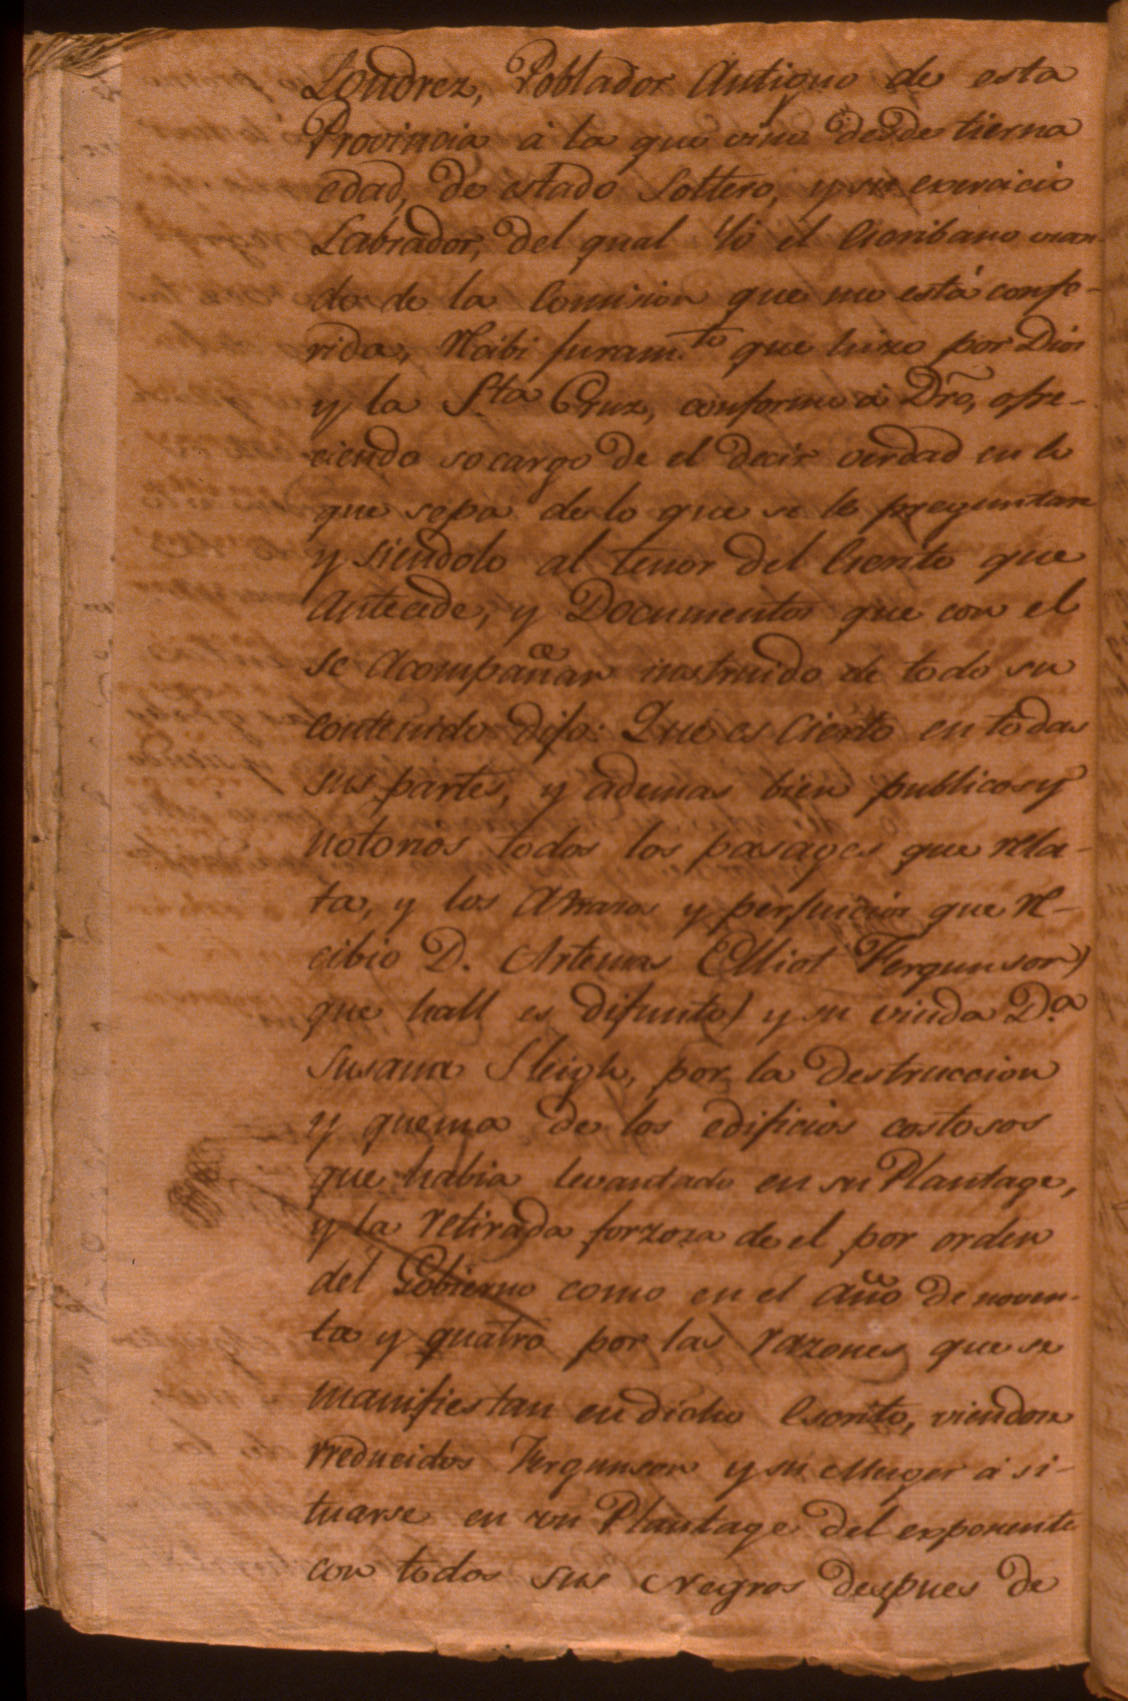 Londrez, Poblador Antiguo de esta
Provincia à la que vino desde tierna
edad, de estado Soltero, y su exercicio
Labrador, del qual Yó el Escribano usan-
do de la Comision que me está confe-
rida, Recibi Juram.to que hizo por Dios
y la S.ta Cruz, conforme à Dro, ofre-
ciendo so cargo de el decir verdad en lo
que sepa de lo que se le preguntare
y siendolo al tenor del Escrito que
Antecede, y Documentos que con el
se Acompañan instruido de todo su
contenido dijo: Que es Cierto en todas
sus partes, y ademas bien publicos y
notorios todos los pasages que rela-
ta, y los Atrazos y perjuicios que re-
cibio D. Artemas Elliot Fergunson)
que hall es difunto) y su viuda D.a
Susana Sleigh, por la destruccion
y quema de los edificios costosos
que habia levantado en su Plantage,
y la retirada forzoza de el por orden
del Gobierno como en el año de noven-
ta y quatro por las razones que se
manifiestan en dicho Escrito, viendose
rreducidos Fergunson y su Muger à si-
tuarse en un Plantage del exponente
con todos sus Negros despues de